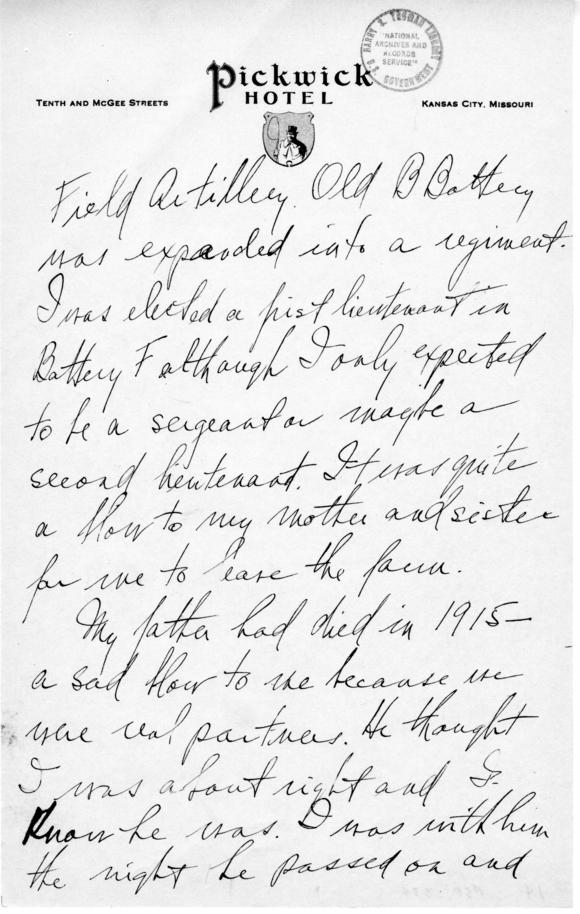 HARRY S. TRUMAN LIBRARY
"NATIONAL
ARCHIVES AND
RECORDS
SERVICE"
U.S. GOVERNMENT
Pickwick
HOTEL
TENTH AND MCGEE STREETS
KANSAS CITY, MISSOURI
Field Artillery. Old B Battery
was expanded into a regiment.
I was elected a first lieutenant in
Battery F although I only expected
to be a sergeant or maybe a
second lieutenant. It was quite
a blow to my mother and sister
for me to leave the farm.
My father had died in 1915—
a sad blow to me because we
were real partners. He thought
I was about right and I
Know he was. I was with him
the night he passed on and